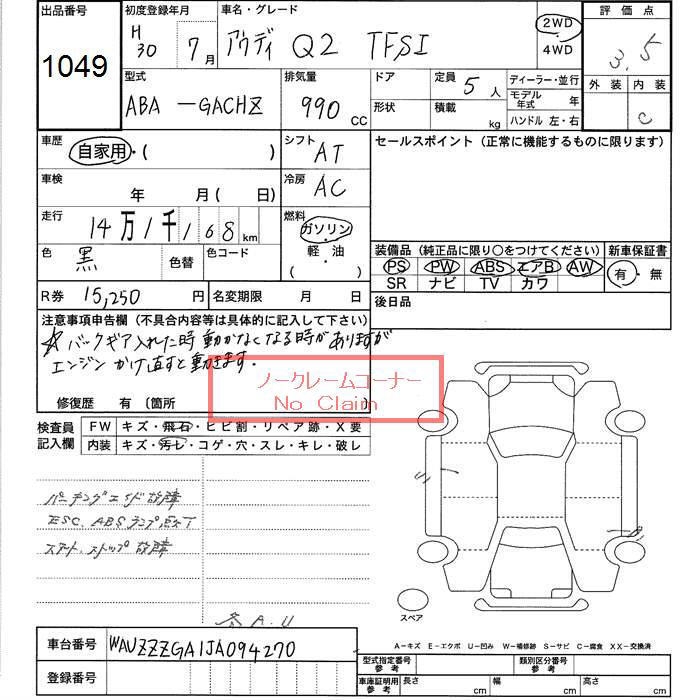 出品番号
1049
初度登録年月
H
30 7月
車名・グレード
アウディ Q2 TFSI
2WD
4WD
評価点
3.5
外装 内装
C
型式
ABA-GACHZ
排気量
990 CC
ドア
形状
定員 5人
積載 kg
ディーラー・並行
モデル年式 年
ハンドル 左・右
車歴
自家用・( )
シフト
AT
セールスポイント (正常に機能するものに限ります)
車検
年 月( 日)
冷房
AC
走行
14万1千168km
燃料
ガソリン
軽・油
( )
色
黒
色替
色コード
装備品 (純正品に限り〇をつけてください) 新車保証書
PS PW ABS エアB AW 有・無
SR ナビ TV カワ
R券 15,250円 名変期限 月 日
後日品
注意事項申告欄 (不具合内容等は具体的に記入して下さい)
☆バックギア入れた時動かなくなる時がありますが
エンジンかけ直すと動きます.
ノークレームコーナー
No Claim
修復歴 有 〔箇所 〕
検査員記入欄
FW キズ・飛石・ヒビ割・リペア跡・X要
内装 キズ・汚レ・コゲ・穴・スレ・キレ・破レ
パーキングエイド故障
ESC.ABSランプ点灯
スタート.ストップ故障
各A.U
スペア
A－キズ E－エクボ U－凹み W－補修跡 S－サビ C－腐食 XX－交換済
車台番号 WAUZZZGA1JA094270
登録番号
型式指定番号 参考
類別区分番号 参考
車庫証明用 参考 長さ cm 幅 cm 高さ cm